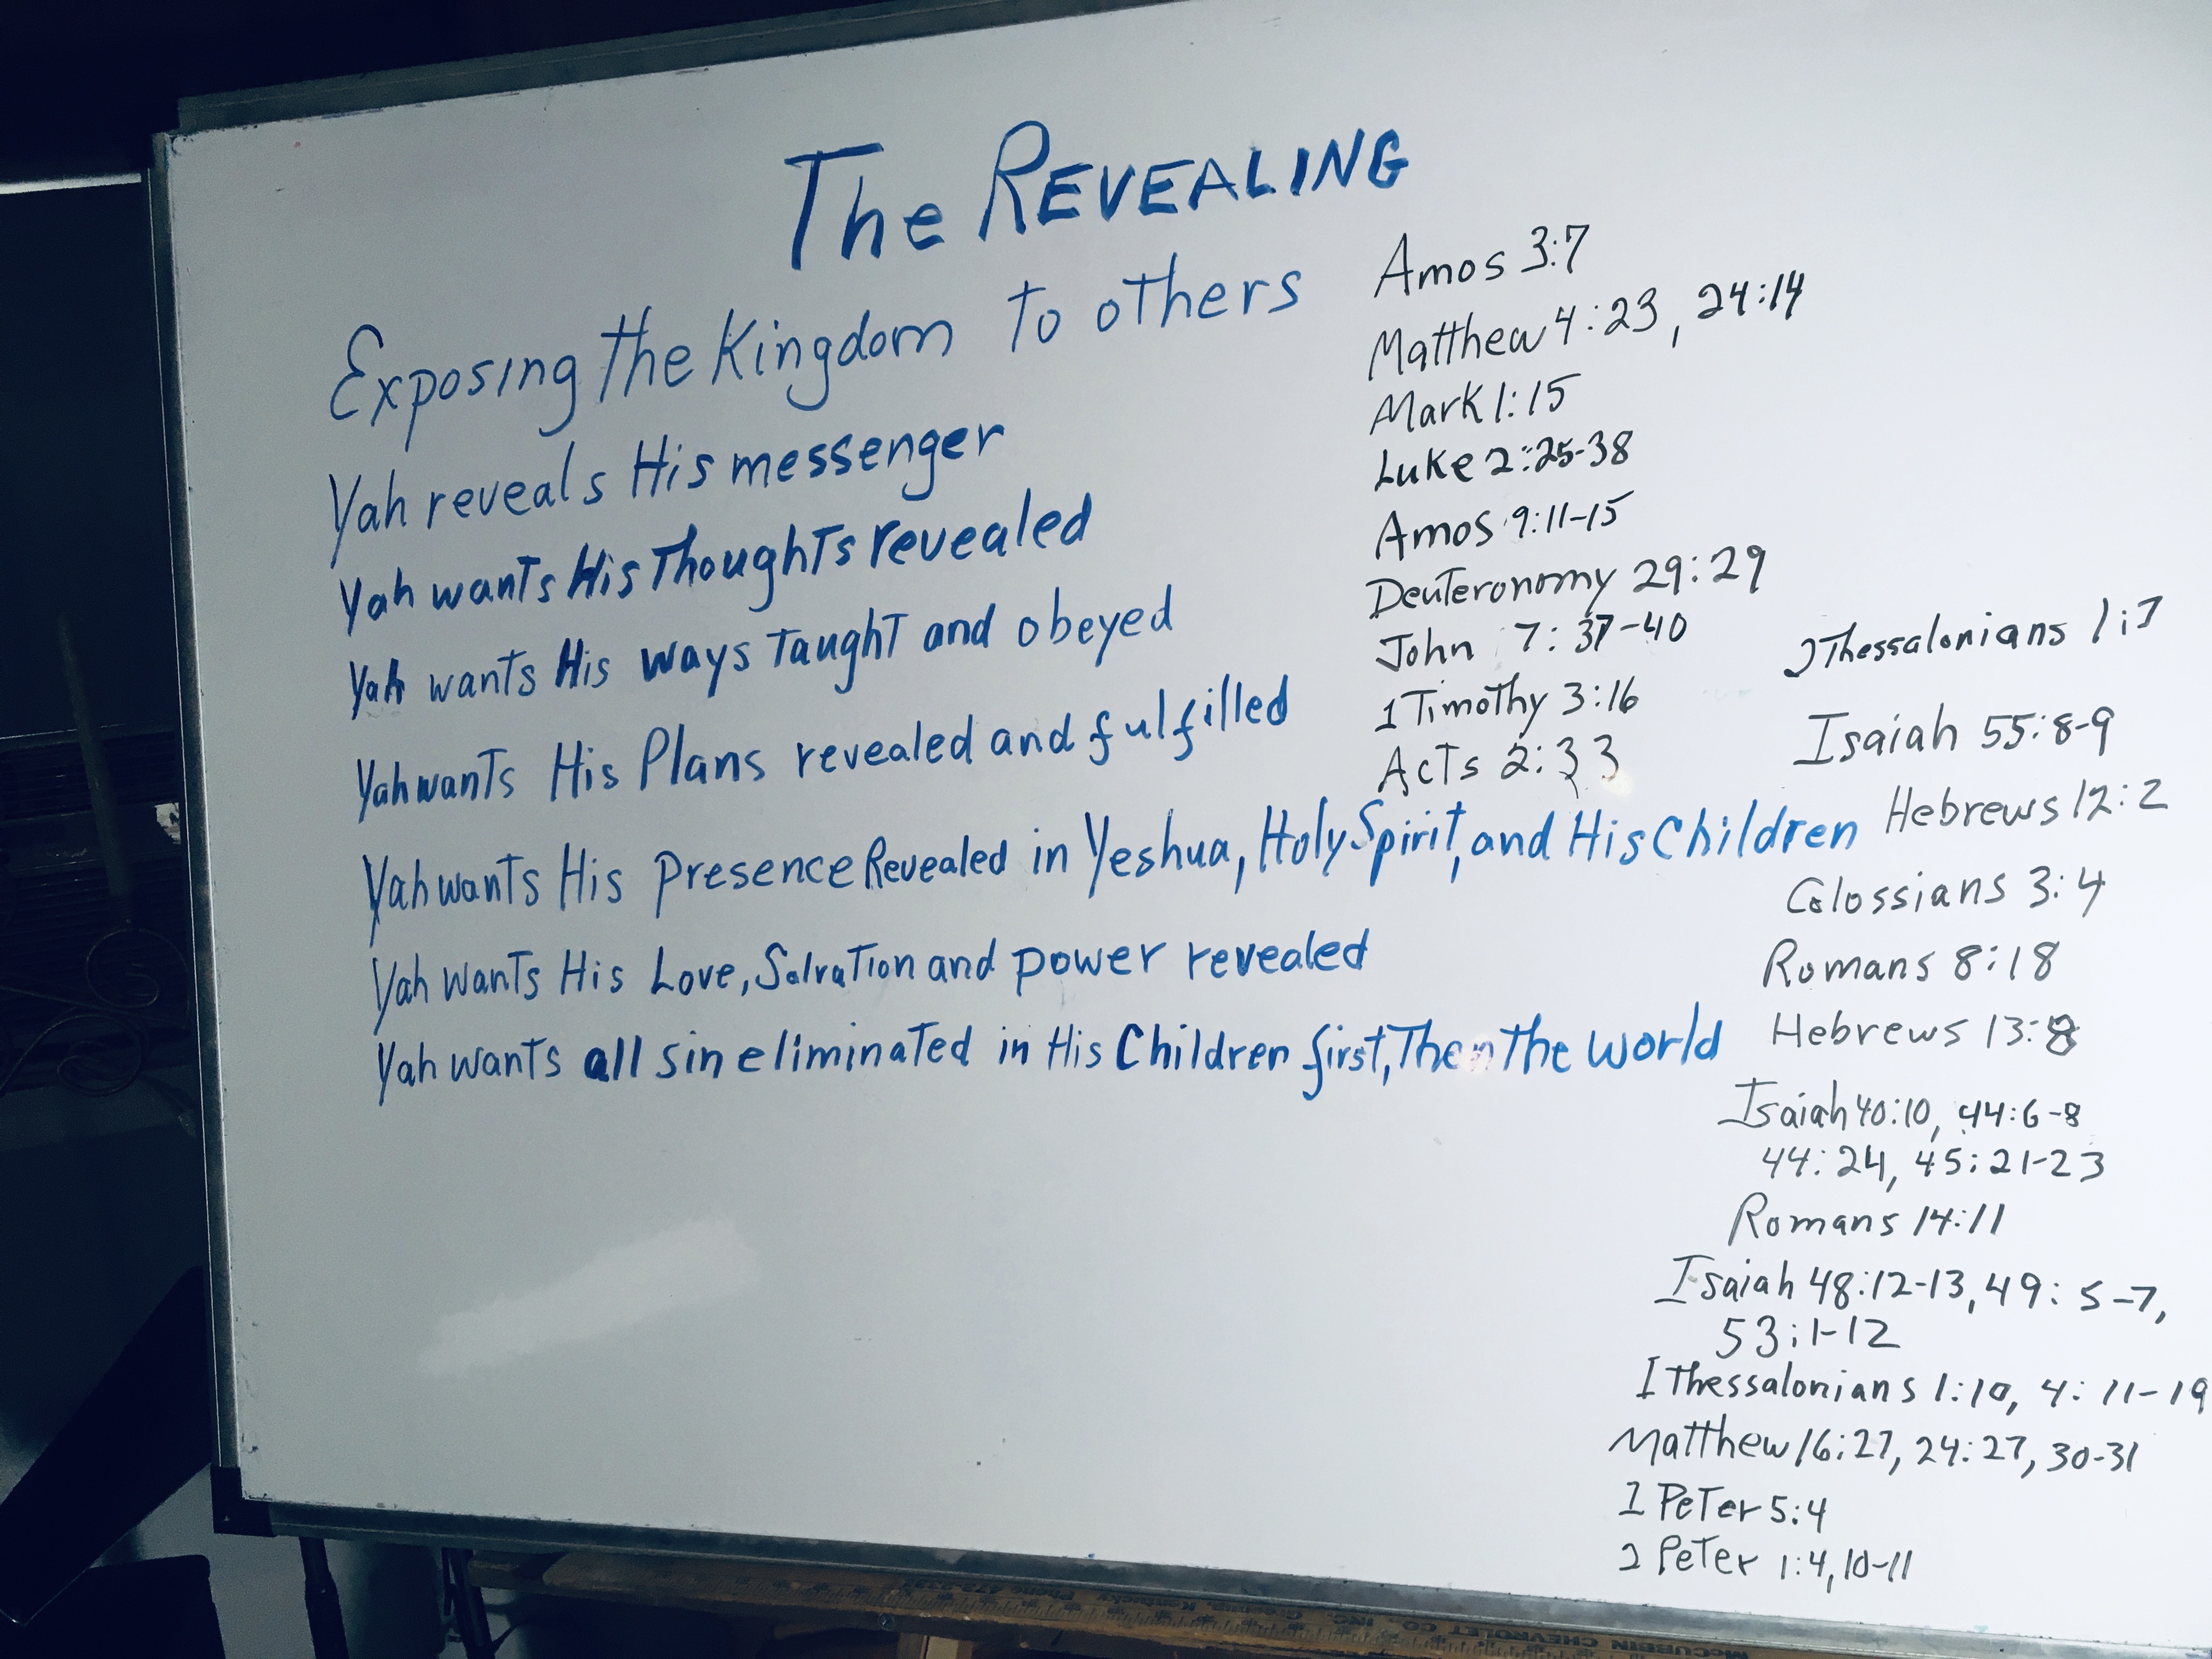 The REVEALING
Exposing the Kingdom to others
Yah reveals His messenger
Yah wants His Thoughts revealed
Yah wants His ways taught and obeyed
Yah wants His Plans revealed and fulfilled
Yah wants His presence Revealed in Yeshua, Holy Spirit, and His Children
Yah wants His Love, Salvation and power revealed
Yah wants all sin eliminated in His Children first, Then the world
Amos 3:7
Matthew 4:23, 24:14
Mark 1:15
Luke 2:25-38
Amos 9:11-15
Deuteronomy 29:29
John 7:37-40
1 Timothy 3:16
Acts 2:33
2 Thessalonians 1:7
Isaiah 55:8-9
Hebrews 12:2
Colossians 3:4
Romans 8:18
Hebrews 13:8
Isaiah 40:10, 44:6-8
44:24, 45:21-23
Romans 14:11
Isaiah 48:12-13, 49:5-7,
53:1-12
1 Thessalonians 1:10, 4:11-19
Matthew 16:27, 24:27, 30-31
1 Peter 5:4
2 Peter 1:4, 10-11
McCUBBIN CHEVROLET CO., INC.